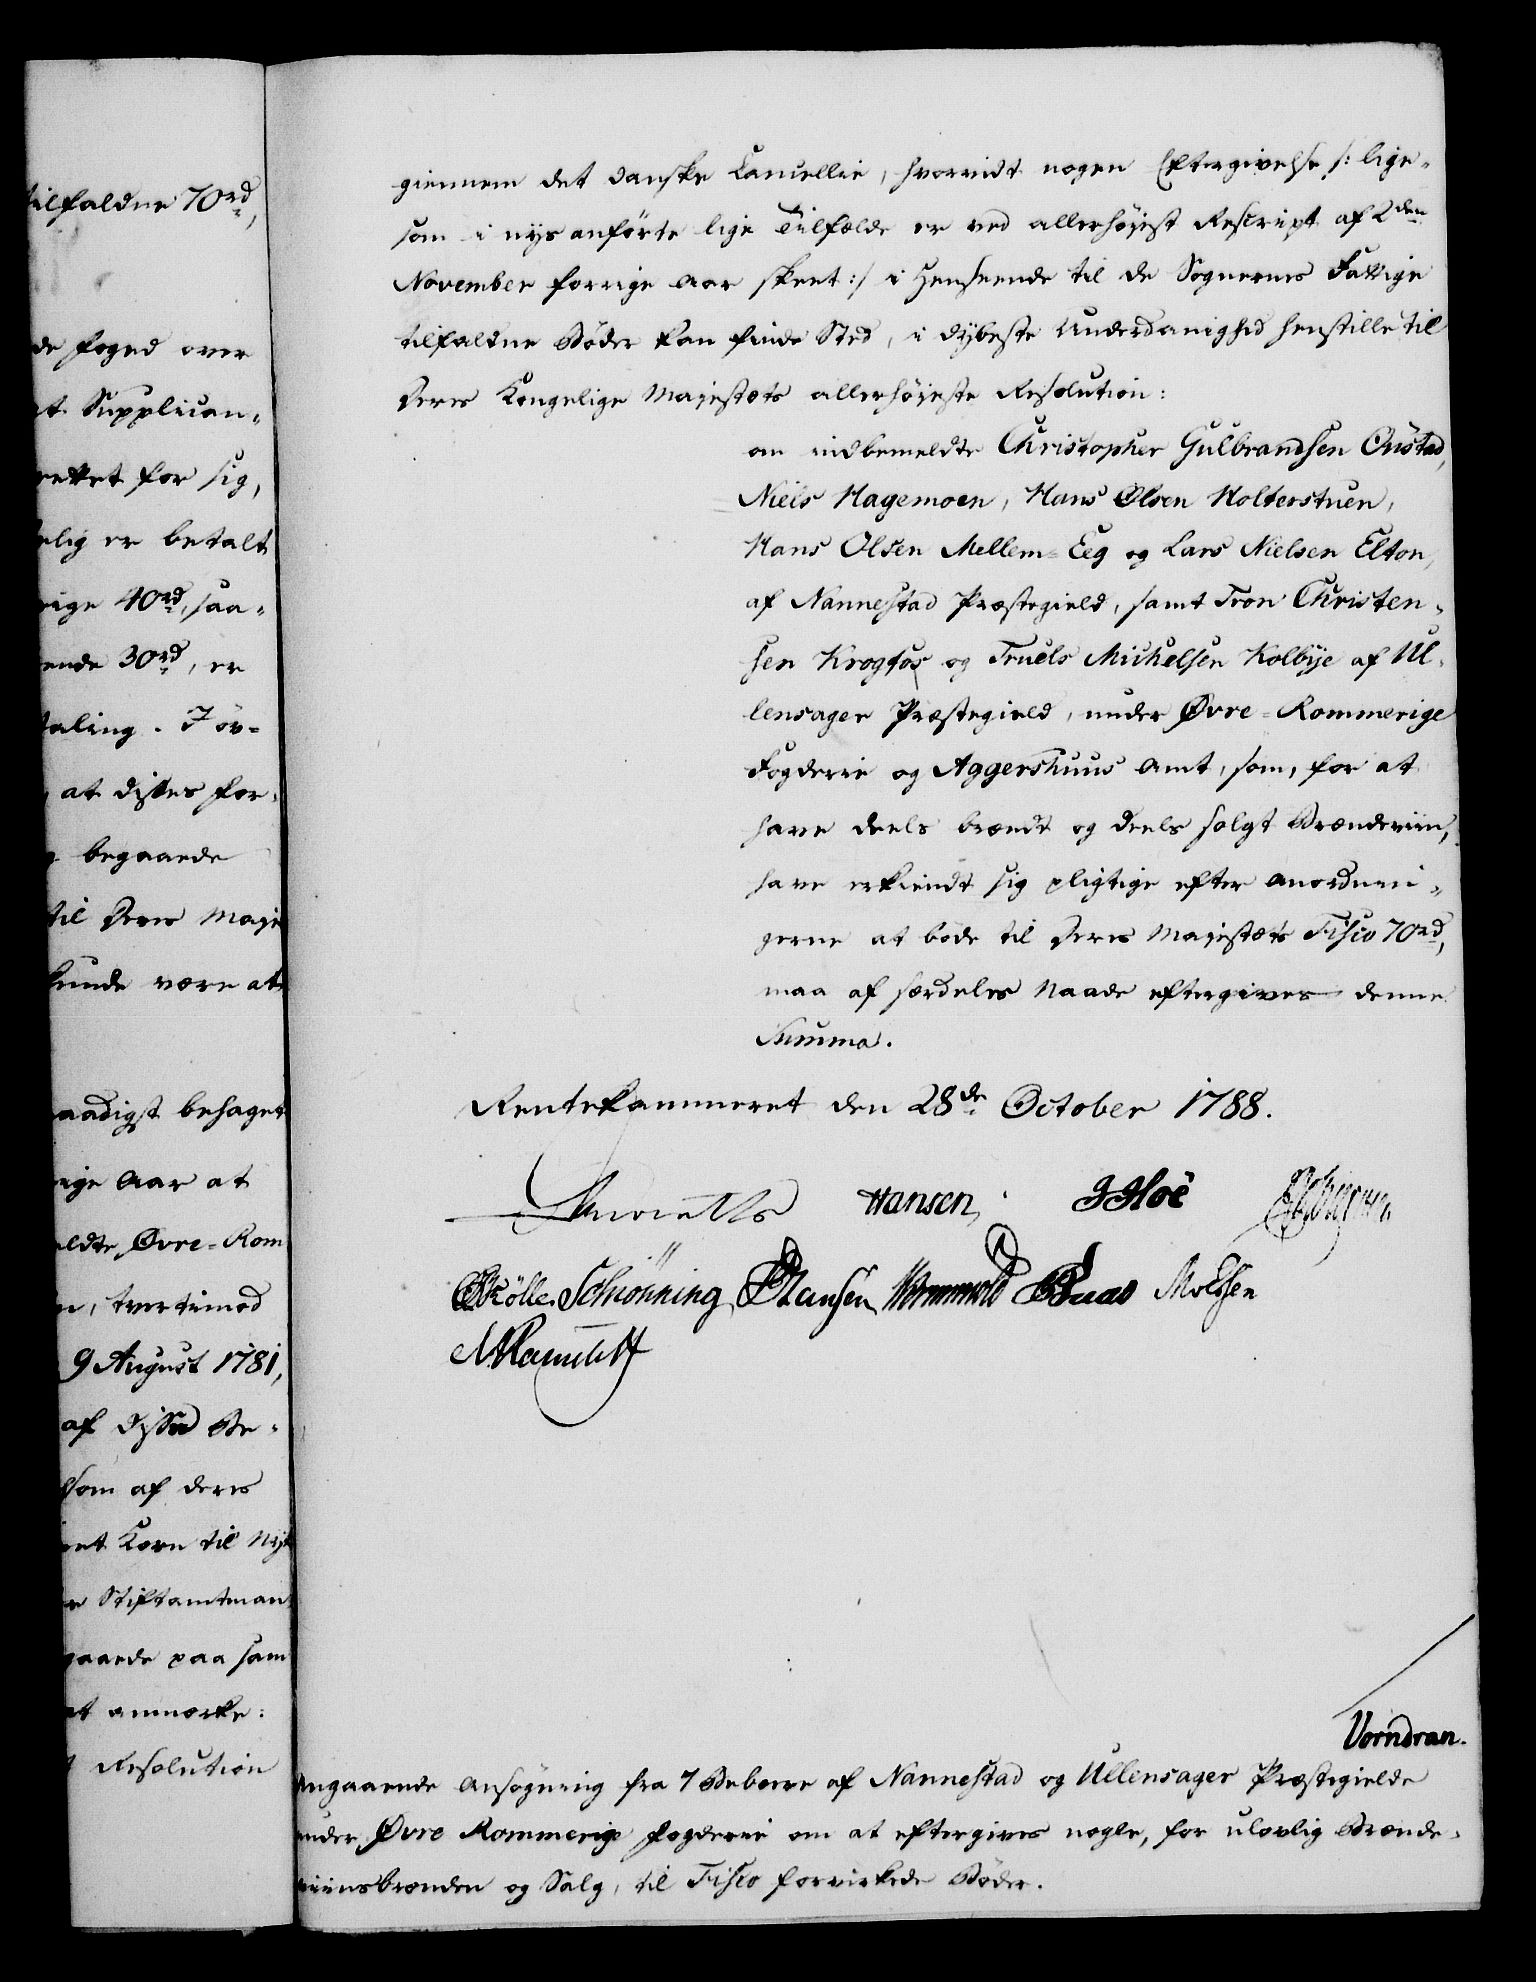 tilfaldne 70rd,
de foged over
at Supplican-
rettet for sig,
elig er betalt
rige 40rd, saa-
ende 30rd, er
taling. I öv-
, at disses for-
begaaede
til Deres Maje
kunde være at
aadigst behaget
rige Aar at
eldte Øvre-Rom
, tvertimod
9 August 1781,
af disse Be-
som af deres
et Korn til
Stiftamtman
gaaede paa sam
at anmærke:
Resolution
giennem det danske Cancellie, hvorvidt nogen Eftergivelse /: lige-
som i nys anförte lige Tilfælde er ved allerhöyest Rescript af 2den
November forrige Aar skeet :/ i Henseende til de Sognernes Fattige
tilfaldne Böder kan finde Sted, i dybeste Underdanighed henstille til
Deres Kongelige Majestæts allerhöyeste Resolution:
om indbemeldte Christopher Gulbrandsen Onstad,
Niels Hagemoen, Hans Olsen Holterstuen,
Hans Olsen Mellem-Eeg og Lars Nielsen Elton,
af Nannestad Præstegield, samt Tron Christen-
sen Krogfos og Truels Michelsen Kolbye af Ul-
lensager Præstegield, under Øvre-Rommerige
Fogderie og Aggershuus Amt, som, for at
have deels brændt og deels solgt Brændeviin,
have erkiendt sig pligtige efter Anordnin-
gerne at böde til Deres Majestæts Fisco 70rd,
maa af særdeles Naade eftergives denne
Summa.
Rentekammeret den 28de October 1788.
Hansen, J Hoë
Kölle. Schiönning Hansen, Wormwold Baas Moesen
Vorndran.
Angaaende Ansögning fra 7 Beboere af Nannestad og Ullensager Præstegielde
under Øvre Rommerige Fogderie om at eftergives nogle, for ulovlig Brænde-
viinsbrænden og Salg, til Fisco forvirkede Böder.